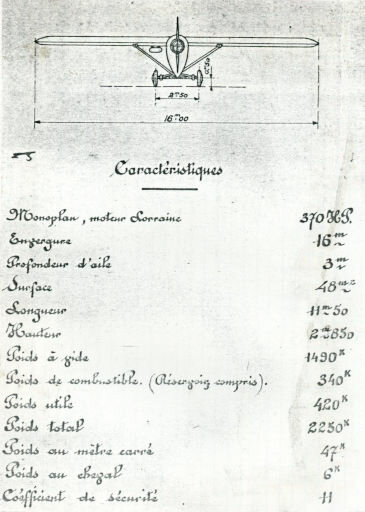 0m50
2m50
16m00
Caractéristiques
Monoplan, moteur Lorraine 370 HP.
Envergure 16m
Profondeur d'aile 3m
Surface 48m2
Longueur 11m50
Hauteur 2m850
Poids à vide 1490K
Poids de combustible. (Réservoirs compris). 340K
Poids utile 420K
Poids total 2250K
Poids au mètre carré 47K
Poids au cheval 6K
Coéfficient de sécurité 11